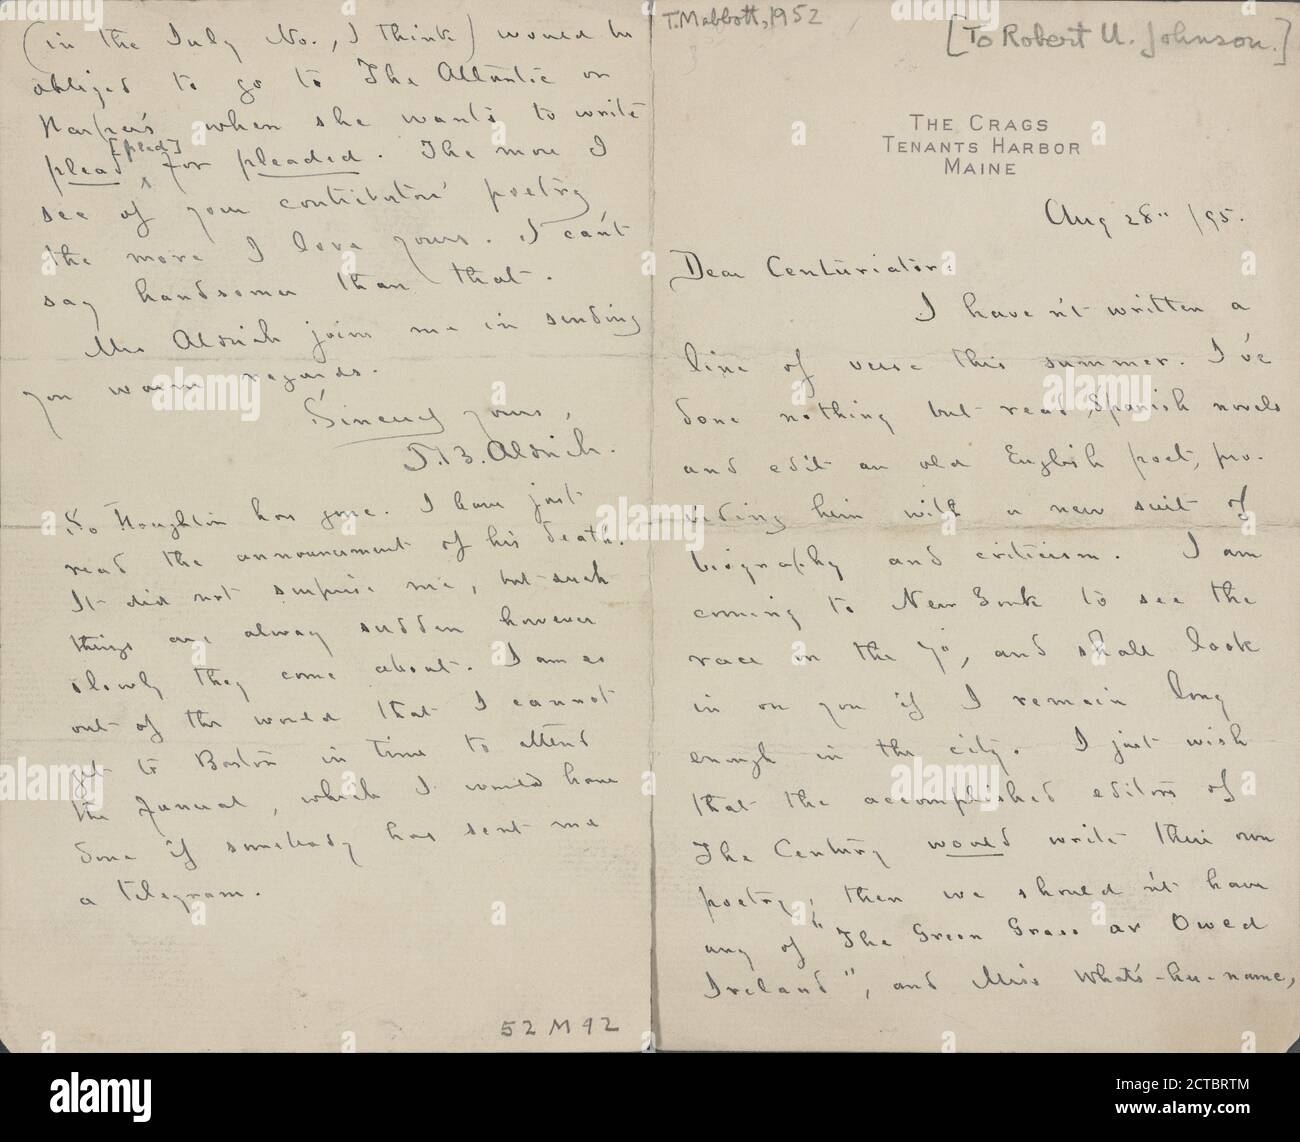 T. Mabbott, 1952
[To Robert U. Johnson.]
THE CRAGS
TENANTS HARBOR
MAINE
Aug 28" /95.
Dear Centuriator:
I haven't written a
line of verse this summer. I've
done nothing but read Spanish novels
and edit an old English poet, pro-
viding him with a new suit of
biography and criticism. I am
coming to New York to see the
race on the 7º, and shall look
in on you if I remain long
enough in the city. I just wish
that the accomplished editors of
The Century would write their own
poetry, then we should n't have
any of "The Green Grass av Owed
Ireland", and Miss What's-hu-name,
(in the July No., I think) would be
obliged to go to The Atlantic or
Harper's when she wants to write
[pled]
plead for pleaded. The more I
see of your contributors' poetry
the more I love yours. I can't
say handsomer than that.
Mrs Aldrich joins me in sending
you warm regards.
Sincerely yours,
T. B. Aldrich.
So Houghton has gone. I have just
read the announcement of his death.
It did not surprise me, but such
things are alway sudden however
slowly they come about. I am so
out of the world that I cannot
get to Boston in time to attend
the funeral, which I would have
done if somebody has sent me
a telegram.
52M92
alamy
Image ID: 2CTBRTM
www.alamy.com